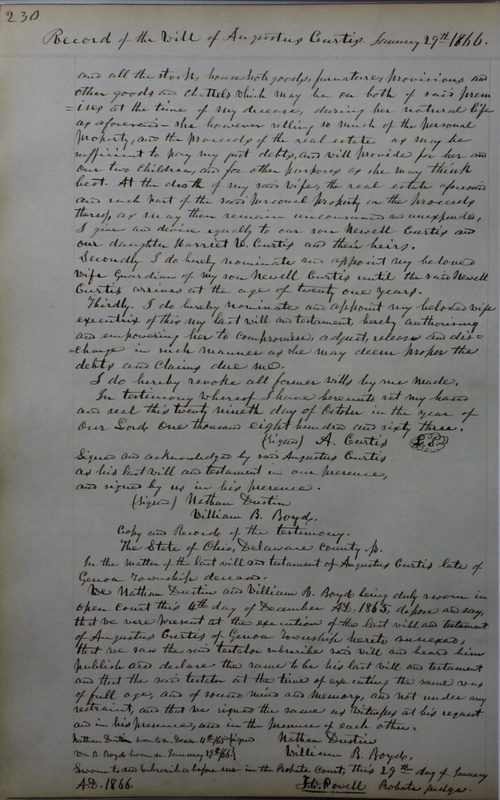 230
Record of the Will of Augustus Curtis January 29th 1866.
and all the stock, household goods, furniture, provisions and
other goods and chattels which may be on both of said prem
=ises at the time of my decease, during her natural life
as aforesaid – she however selling so much of the personal
property, and the proceeds of the real estate as may be
sufficient to pay my just debts, and will provide for her and
our two children, and for other purposes as she may think
best. At the death of my said wife, the real estate aforesaid
and such part of the said personal property or the proceeds
thereof, as may then remain unconsumed and unexpended,
I give and devise equally to our son Newell Curtis and
our daughter Harriet V. Curtis and their heirs.
Secondly. I do hereby nominate and appoint my beloved
wife Guardian of my son Newell Curtis until the said Newell
Curtis arrives at the age of twenty one years.
Thirdly. I do hereby nominate and appoint my beloved wife
executrix of this my last will and testament, hereby authorising
and empowering her to compromise, adjust, release and dis=
=charge in such manner as she may deem proper the
debts and claims due me.
I do hereby revoke all former wills by me made.
In testimony whereof I have hereunto set my hand
and seal this twenty nineth day of October in the year of
Our Lord One thousand eight hundred and sixty three.
(Signed) A. Curtis L.S.
Signed and acknowledged by said Augustus Curtis
as his last will and testament in our presence,
and signed by us in his presence.
(Signed) Nathan Dustin
William B. Boyd.
Copy and Record of the testimony.
The State of Ohio, Delaware County. ss.
In the matter of the last will and testament of Augustus Curtis late of
Genoa Township deceased.
We Nathan Dustin and William B. Boyd being duly sworn in
open Court this 4th day of December A.D. 1865, depose and say,
that we were present at the execution of the last will and testament
of Augustus Curtis of Genoa Township hereto annexed.
that we saw the said testator subscribe said will and heard him
publish and declare the same to be his last will and testament
and that the said testator at the time of executing the same was
of full age, and of sound mind and memory, and not under any
restraint, and that we signed the same as witnesses at his request
and in his presence, and in the presence of each other.
Nathan Dustin sworn to Decem. 4th 1865 Signed Nathan Dustin
Wm B. Boyd sworn January 29th 1866 William B. Boyd,
Sworn to and subscribed before me in the Probate Court, this 29th day of January
A.D. 1866. Powell Probate Judge.